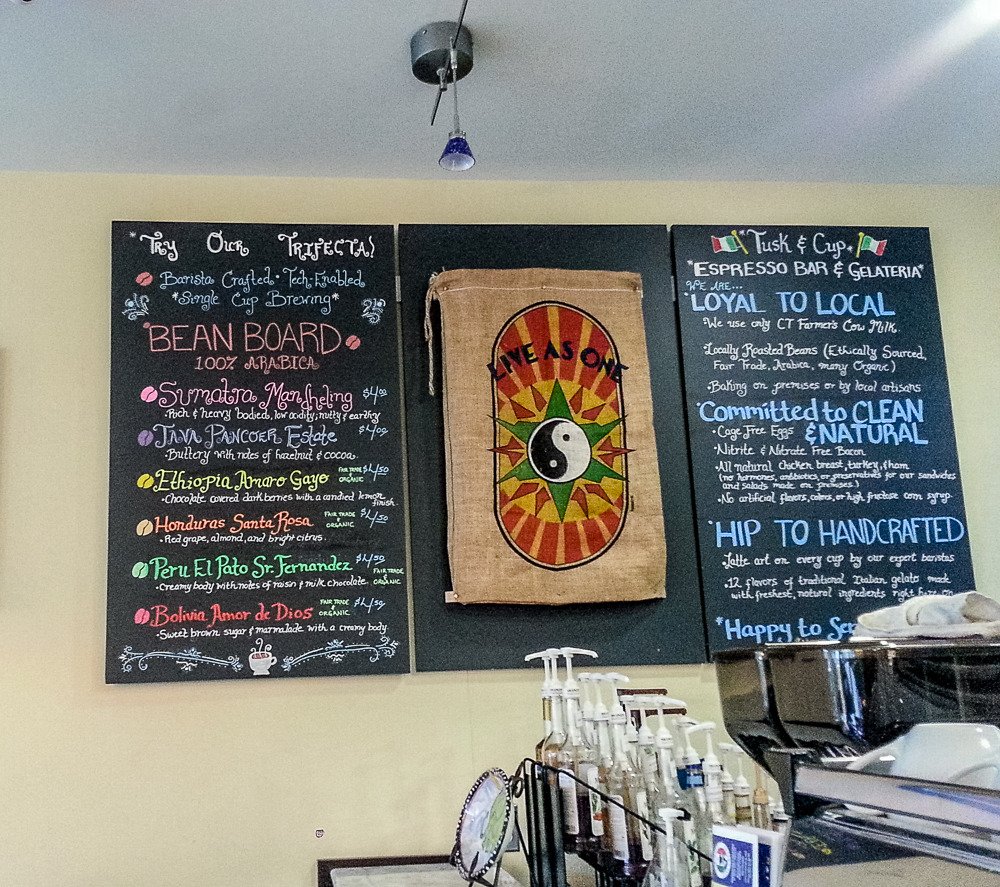 *Try Our Trifecta!
Barista Crafted • Tech-Enabled
*Single Cup Brewing*
*BEAN BOARD
100% ARABICA
Sumatra Mandheling $4.00
•Rich & heavy bodied, low acidity, nutty & earthy
Java Pancoer Estate $4.00
•Buttery with notes of hazelnut & cocoa.
Ethiopia Amaro Gayo FAIR TRADE & ORGANIC $4.50
•Chocolate covered dark berries with a candied lemon finish.
Honduras Santa Rosa FAIR TRADE & ORGANIC $4.50
•Red grape, almond, and bright citrus.
Peru El Pato Sr. Fernandez $4.50
•Creamy body with notes of raisin & milk chocolate. FAIR TRADE & ORGANIC
Bolivia Amor de Dios FAIR TRADE & ORGANIC $4.50
•Sweet brown sugar & marmalade with a creamy body
LIVE AS ONE
*Tusk & Cup*
*ESPRESSO BAR & GELATERIA*
WE ARE...
*LOYAL TO LOCAL
•We use only CT Farmer's Cow Milk
•Locally Roasted Beans (Ethically Sourced,
Fair Trade, Arabica, many Organic)
•Baking on premises or by local artisans
*Committed to CLEAN
& NATURAL
•Cage Free Eggs
•Nitrite & Nitrate Free Bacon
•All natural chicken breast, turkey, & ham
(no hormones, antibiotics, or preservatives for our sandwiches
and salads made on premises)
•No artificial flavors, colors, or high fructose corn syrup
*HIP TO HANDCRAFTED
•Latte art on every cup by our expert baristas
•12 flavors of traditional Italian gelato made
with freshest, natural ingredients right here on
*Happy to